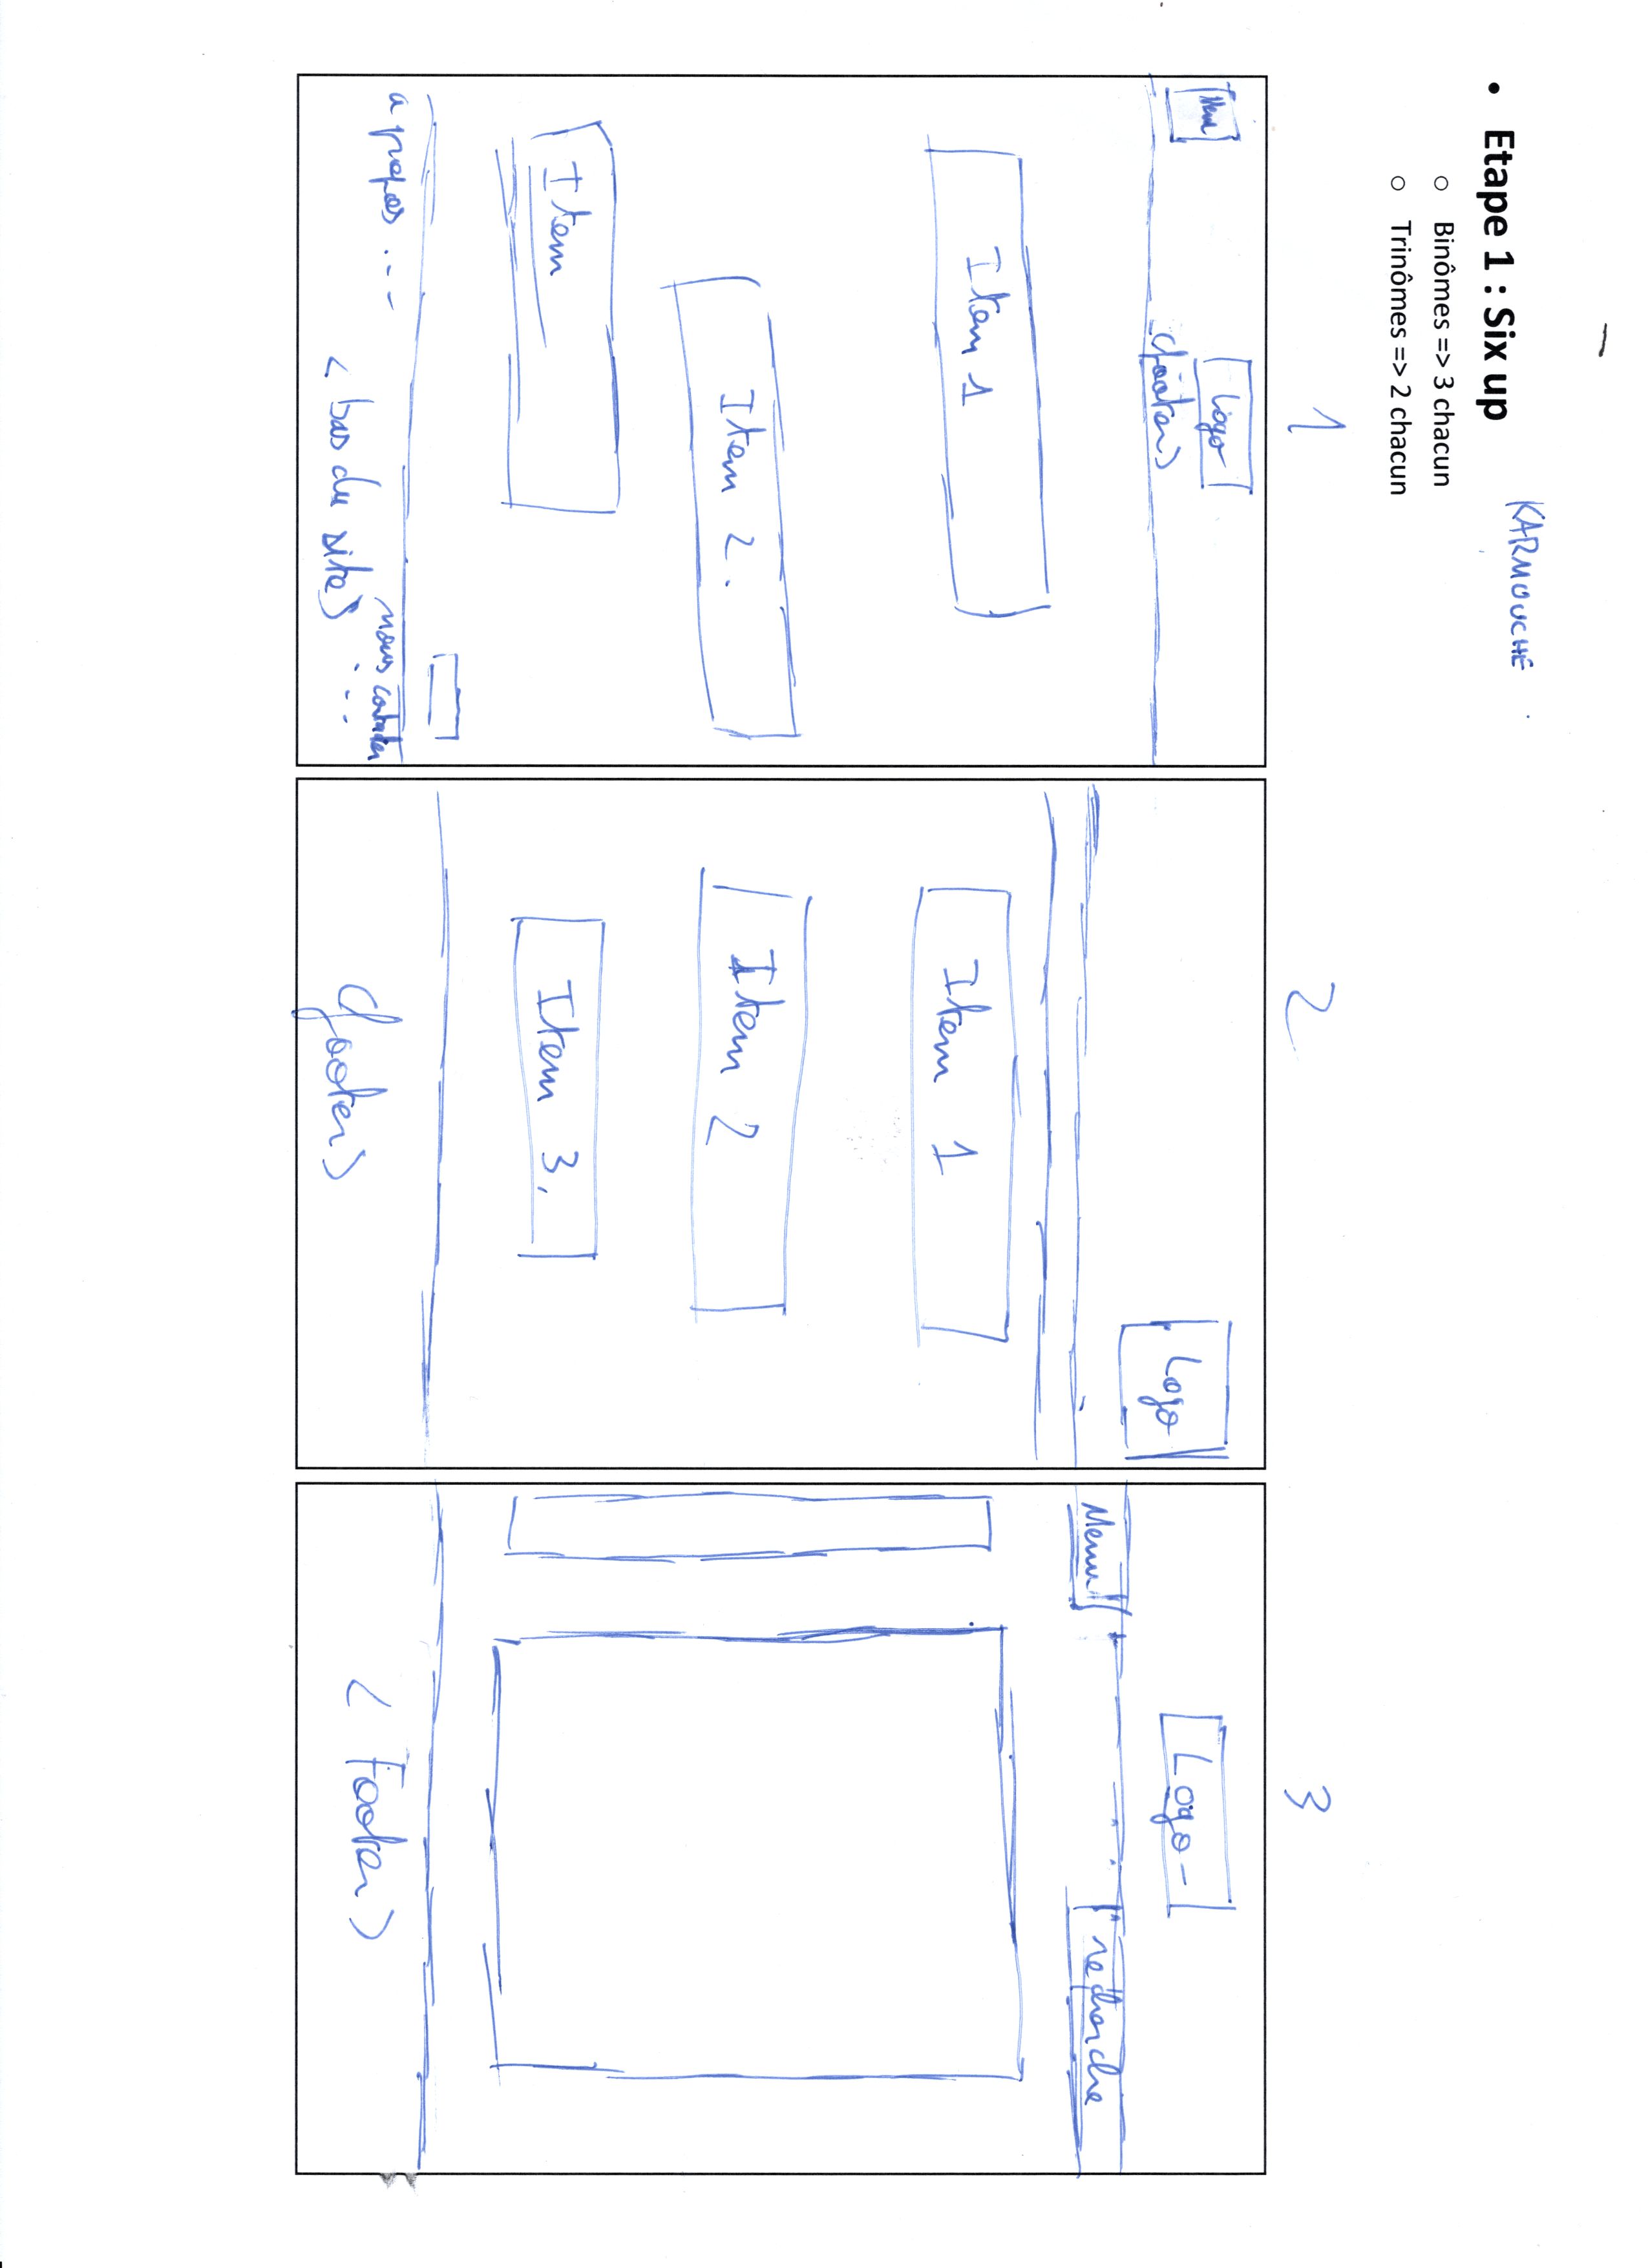 • Etape 1 : Six up
KARMOUCHE
○ Binômes => 3 chacun
○ Trinômes => 2 chacun
1
Logo
<footer>
Item 1
Item 2.
Item
a propos ...
nous contacter
...
<bas du site>
2
Logo
Item 1
Item 2
Item 3.
<footer>
3
Logo
Menu
recherche
<Footer>